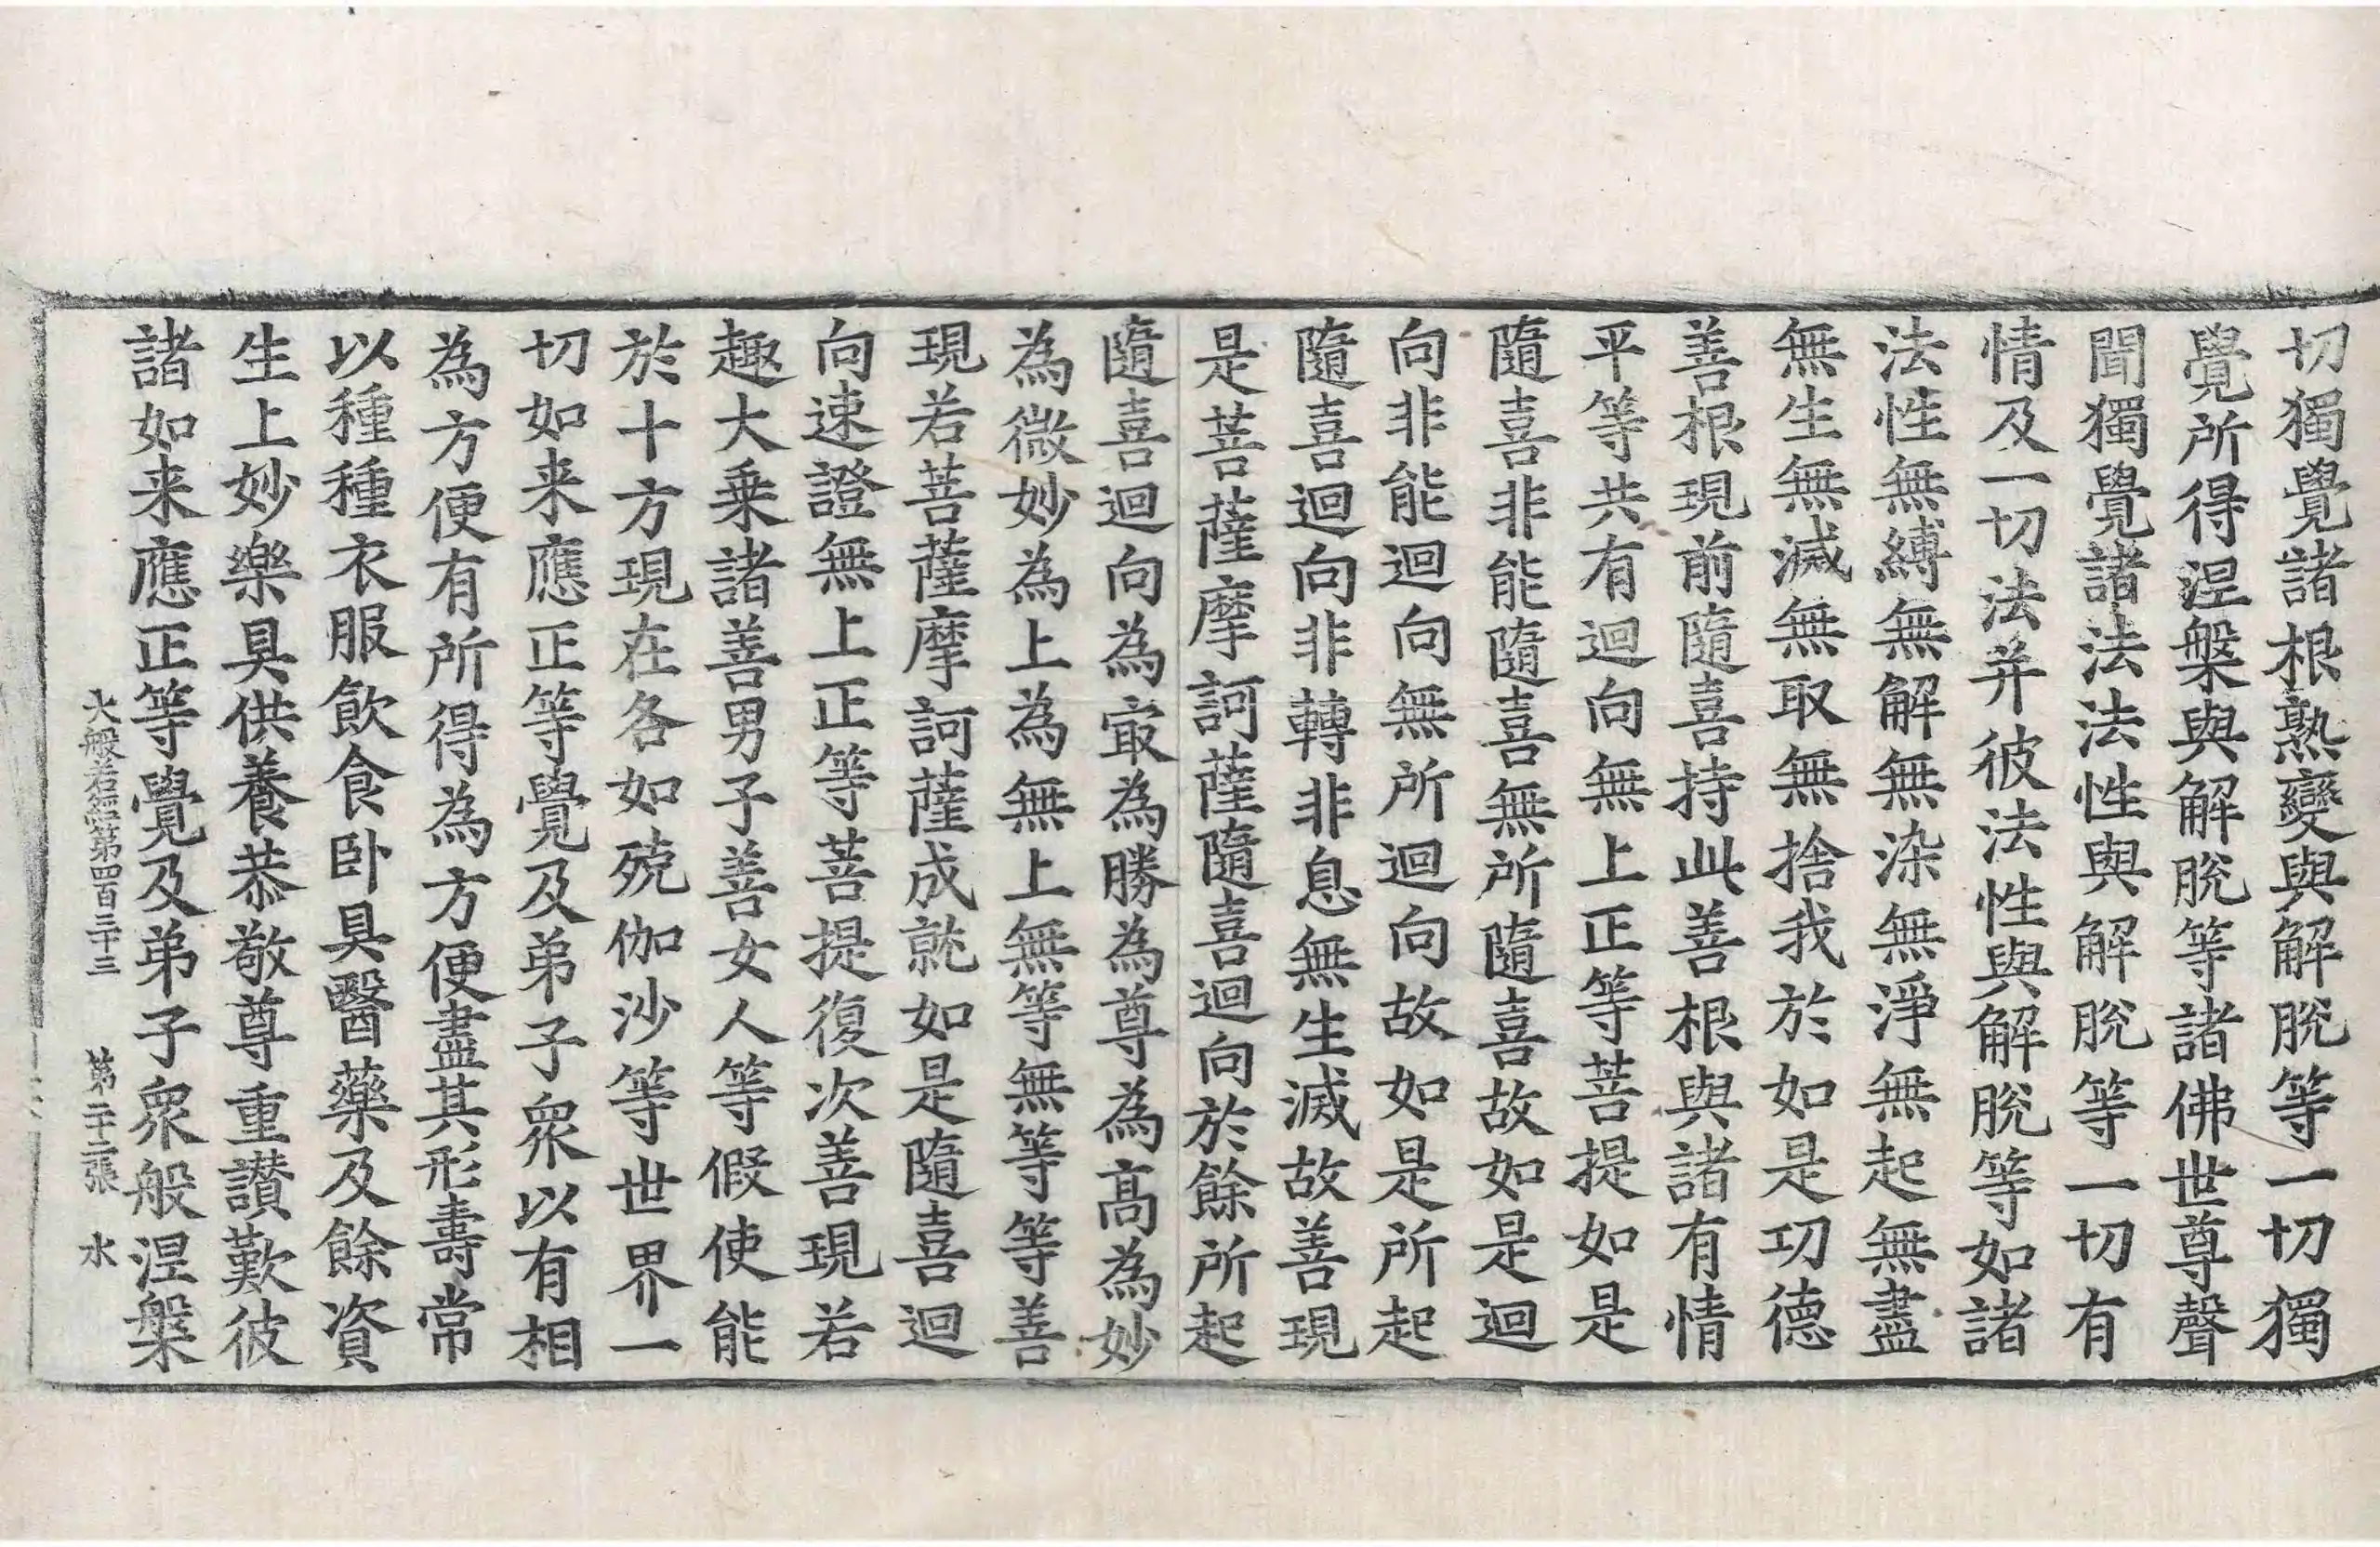 切獨覺諸根熟變與解脫等一切獨
覺所得涅槃與解脫等諸佛世尊聲
聞獨覺諸法法性與解脫等一切有
情及一切法并彼法性與解脫等如諸
法性無縛無解無染無淨無起無盡
無生無滅無取無捨我於如是功德
善根現前隨喜持此善根與諸有情
平等共有迴向無上正等菩提如是
隨喜非能隨喜無所隨喜故如是迴
向非能迴向無所迴向故如是所起
隨喜迴向非轉非息無生滅故善現
是菩薩摩訶薩隨喜迴向於餘所起
隨喜迴向為㝡為勝為尊為髙為妙
為微妙為上為無上無等無等等善
現若菩薩摩訶薩成就如是隨喜迴
向速證無上正等菩提復次善現若
趣大乗諸善男子善女人等假使能
於十方現在各如殑伽沙等世界一
切如来應正等覺及弟子衆以有相
為方便有所得為方便盡其形壽常
以種種衣服飲食卧具醫藥及餘資
生上妙樂具供養恭敬尊重讃歎彼
諸如来應正等覺及弟子衆般涅槃
大般若經第四百三十三 第二十二張 水